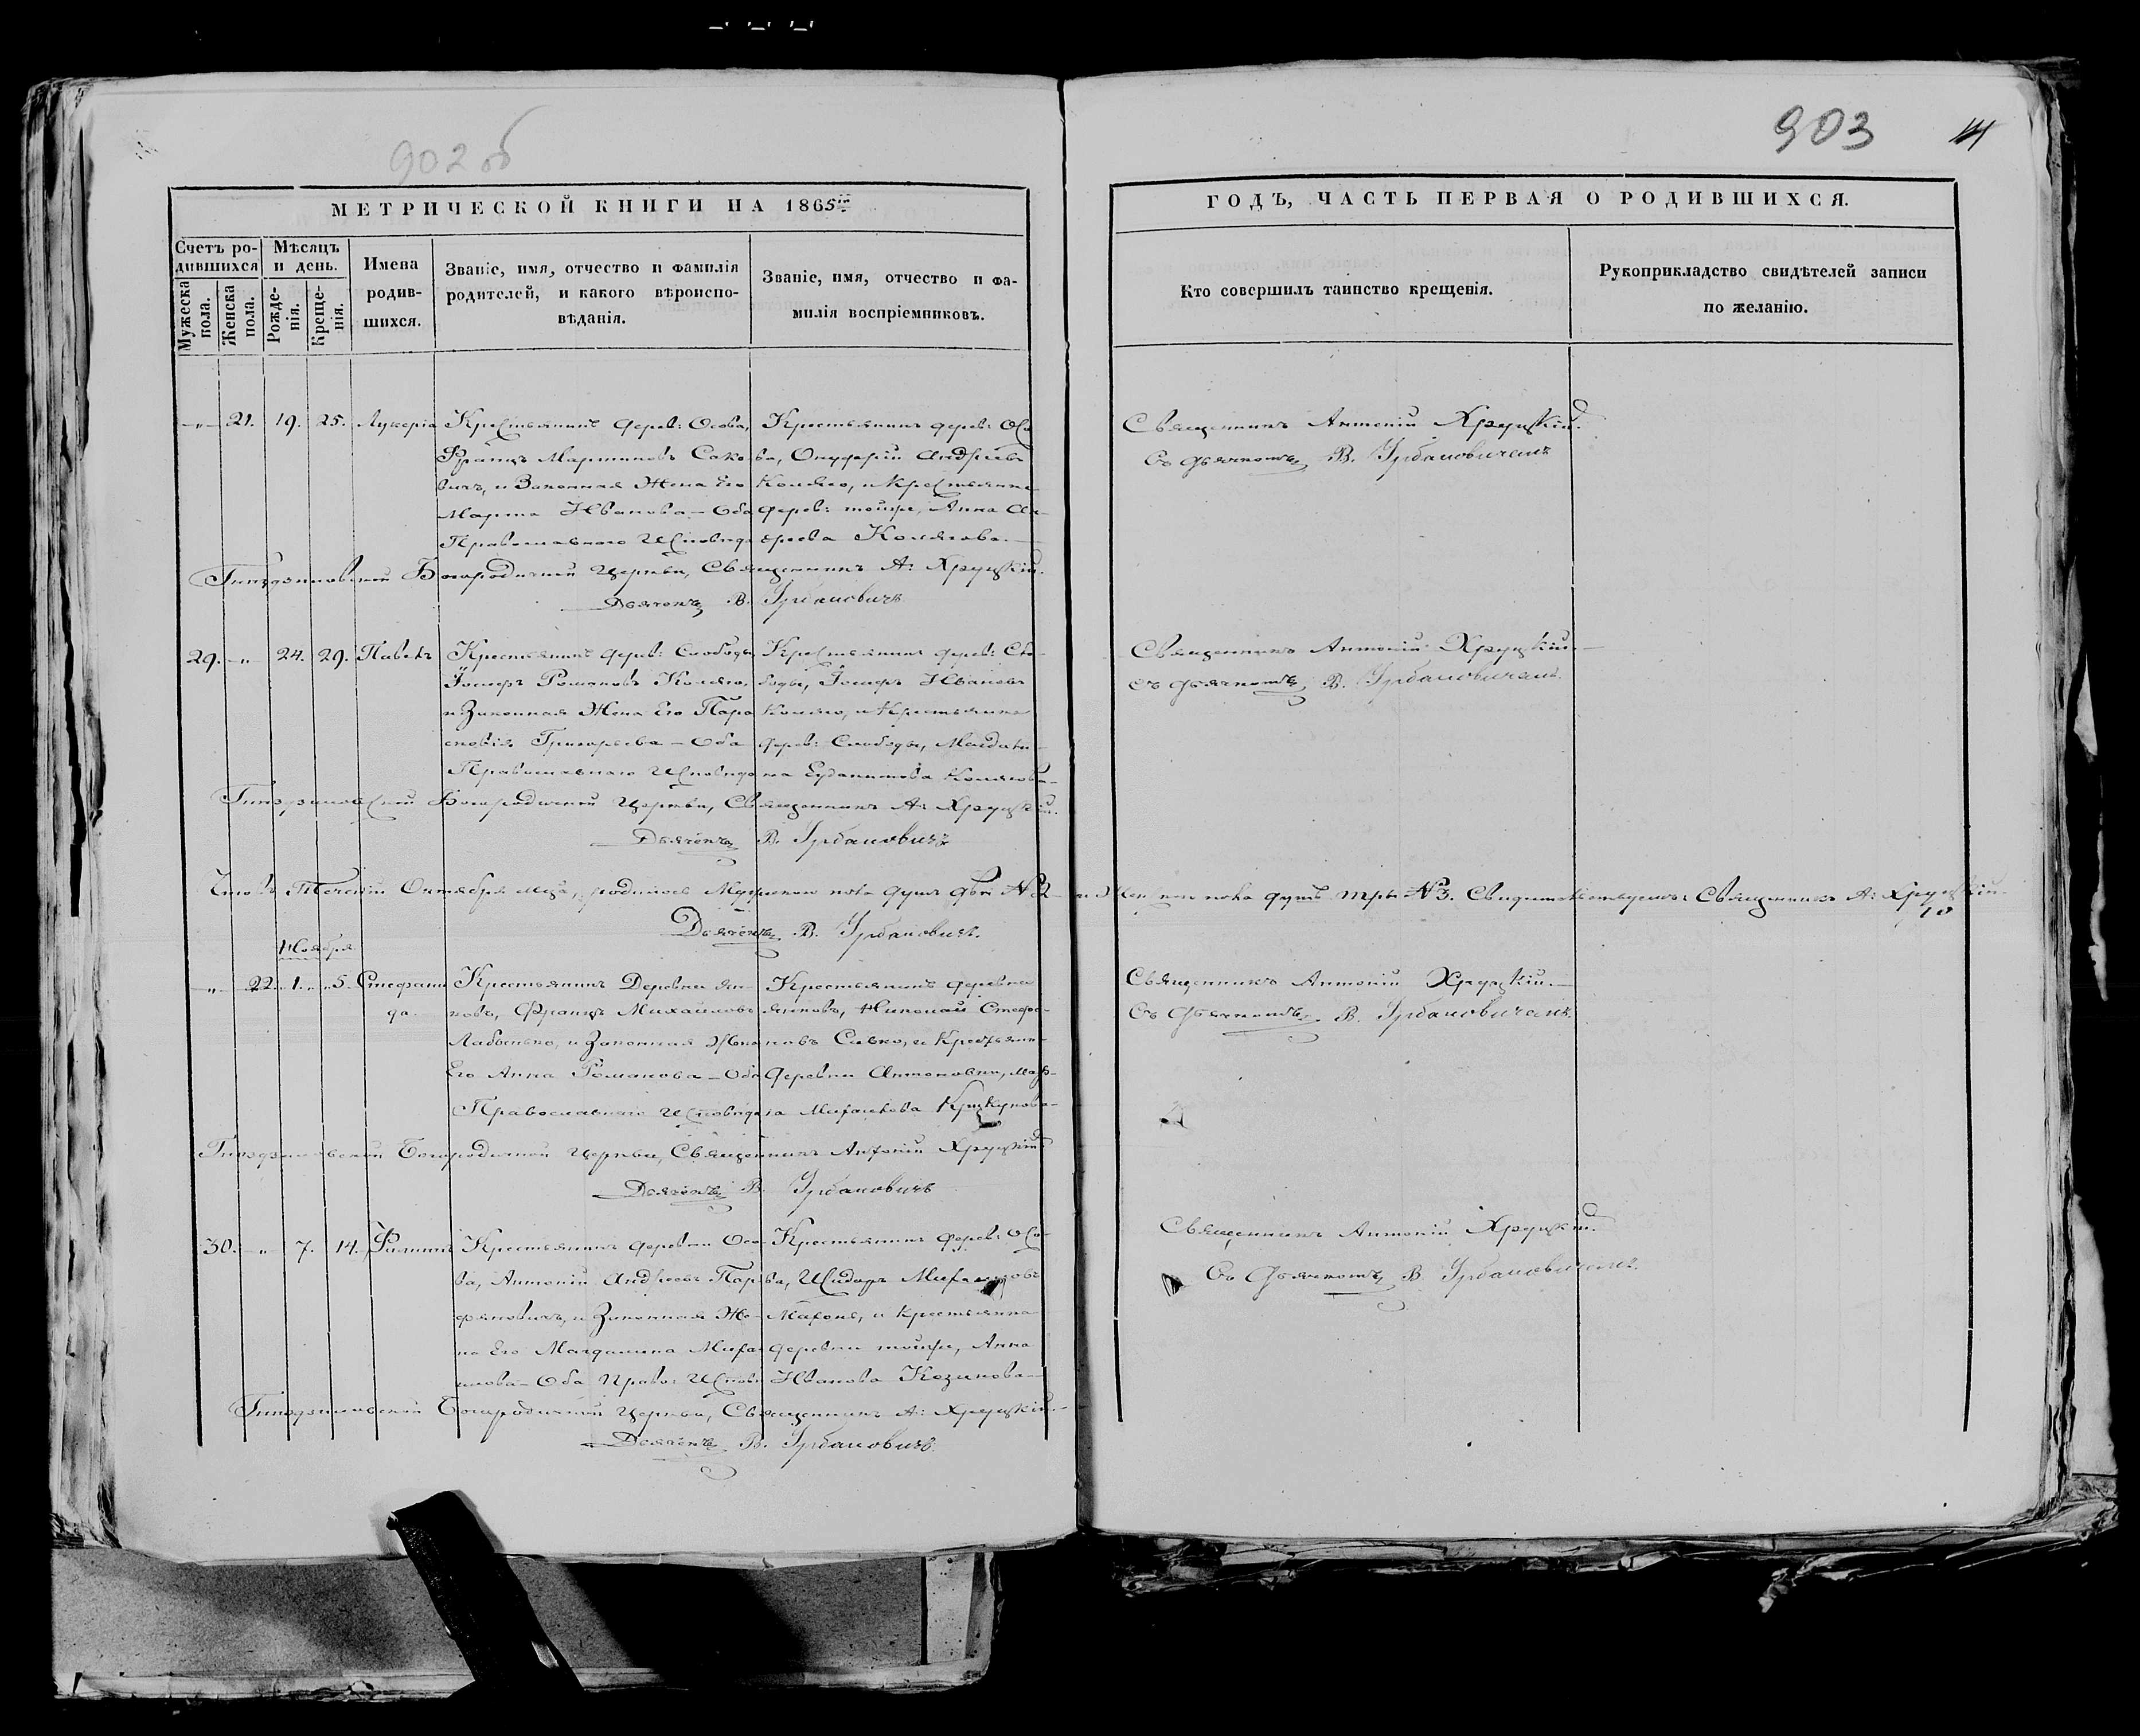 902 об
903
МЕТРИЧЕСКОЙ КНИГИ НА 1865й
ГОДЪ, ЧАСТЬ ПЕРВАЯ О РОДИВШИХСЯ.
Счетъ родившихся
Мужеска пола.
Женска пола.
Мѣсяцъ и день.
Рожденія.
Крещенія.
Имена родившихся.
Званіе, имя, отчество и фамилія
родителей, и какого вѣроиспо-
вѣданія.
Званіе, имя, отчество и фа-
милія воспріемниковъ.
Кто совершилъ таинство крещенія.
Рукоприкладство свидѣтелей записи
по желанію.
21. 19. 25. Лукерія
Крестьянинъ дерев: Осова,
Францъ Мартиновъ Сако-
вичъ, и Законная Жена Его
Марта Иванова – Оба
Православнаго Исповѣд
Крестьянинъ дерев: Осо
ва, Онуфрій Андреевъ
Коляго, и Крестьянка
дерев: тойже, Анна Ан-
дреева Колягова.
Священникъ Антоній Хруцкій.
Съ Дьячкомъ В. Урбановичемъ
Богородичной Церкви, Священникъ А: Хруцкій.
Дьячекъ В. Урбановичъ
29. „ 24. 29. Павелъ
Крестьянинъ дерев: Слободы
Іосифъ Романовъ Коляго,
и Законная Жена Его Пара
скевія Григорьева – Оба
Православнаго Исповѣда
Крестьянинъ дерев: Сло-
боды, Іосифъ Ивановъ
Коляго, и Крестьянка
дерев: Слободы, Магдали-
на Колягова
Священникъ Антоній Хруцкій.
съ Дьячкомъ В. Урбановичемъ.
Богородичной Церкви, Священникъ А: Хруцкій.
Дьячекъ В. Урбановичъ
Октября Мца, родилось Мужеска пола душъ двѣ №2 и Женска пола душъ три №3. Свидѣтельствуемъ: Священникъ А: Хруцкій
Дьячекъ В. Урбановичъ.
10
Ноября
„ 22. 1. 5. Стефани
да.
Крестьянинъ Деревни Ян-
ковъ, Францъ Михайловъ
и Законная Жена
Его Анна Романова – Оба
Православнаго Исповѣда
Крестьянинъ деревни
Николай Стефа-
новъ Сивко, и Крестьянк
Деревни Антоновки, Мар-
та Михайлова
Священникъ Антоній Хруцкій.
Съ Дьячкомъ В. Урбановичемъ.
Богородичной Церкви, Священникъ Антоній Хруцкій
Дьячекъ В. Урбановичъ
30. „ 7. 14. Филипъ
Крестьянинъ деревни Осо-
ва, Антоній Андреевъ Пар
фяновичъ, и Законная Же-
на Его Магдалина Миха-
илова – Оба Право: Исповѣ
Крестьянинъ дерев: Осо-
ва, Исидоръ Михайловъ
и Крестьянка
деревни тойже, Анна
Иванова Козикова
Священникъ Антоній Хруцкій.
Съ Дьячкомъ В. Урбановичемъ.
Богородичной Церкви, Священникъ А: Хруцкій.
Дьячекъ В. Урбановичъ.